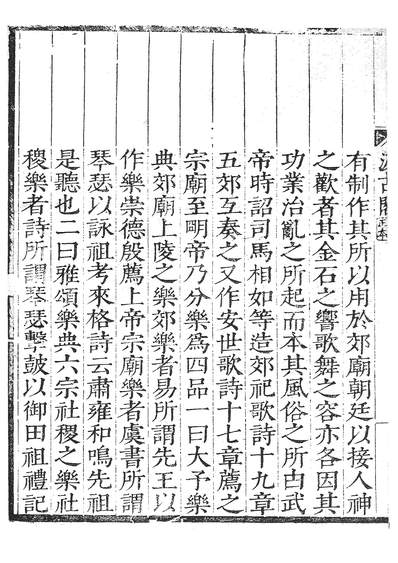 汲古閣
有制作其所以用於郊廟朝廷以接人神
之歡者其金石之響歌舞之容亦各因其
功業治亂之所起而本其風俗之所由武
帝時詔司馬相如等造郊祀歌詩十九章
五郊互奏之又作安世歌詩十七章薦之
宗廟至明帝乃分樂爲四品一曰大予樂
典郊廟上陵之樂郊樂者易所謂先王以
作樂崇德殷薦上帝宗廟樂者虞書所謂
琴瑟以詠祖考來格詩云肅雍和鳴先祖
是聽也二曰雅頌樂典六宗社稷之樂社
稷樂者詩所謂琴瑟擊鼓以御田祖禮記